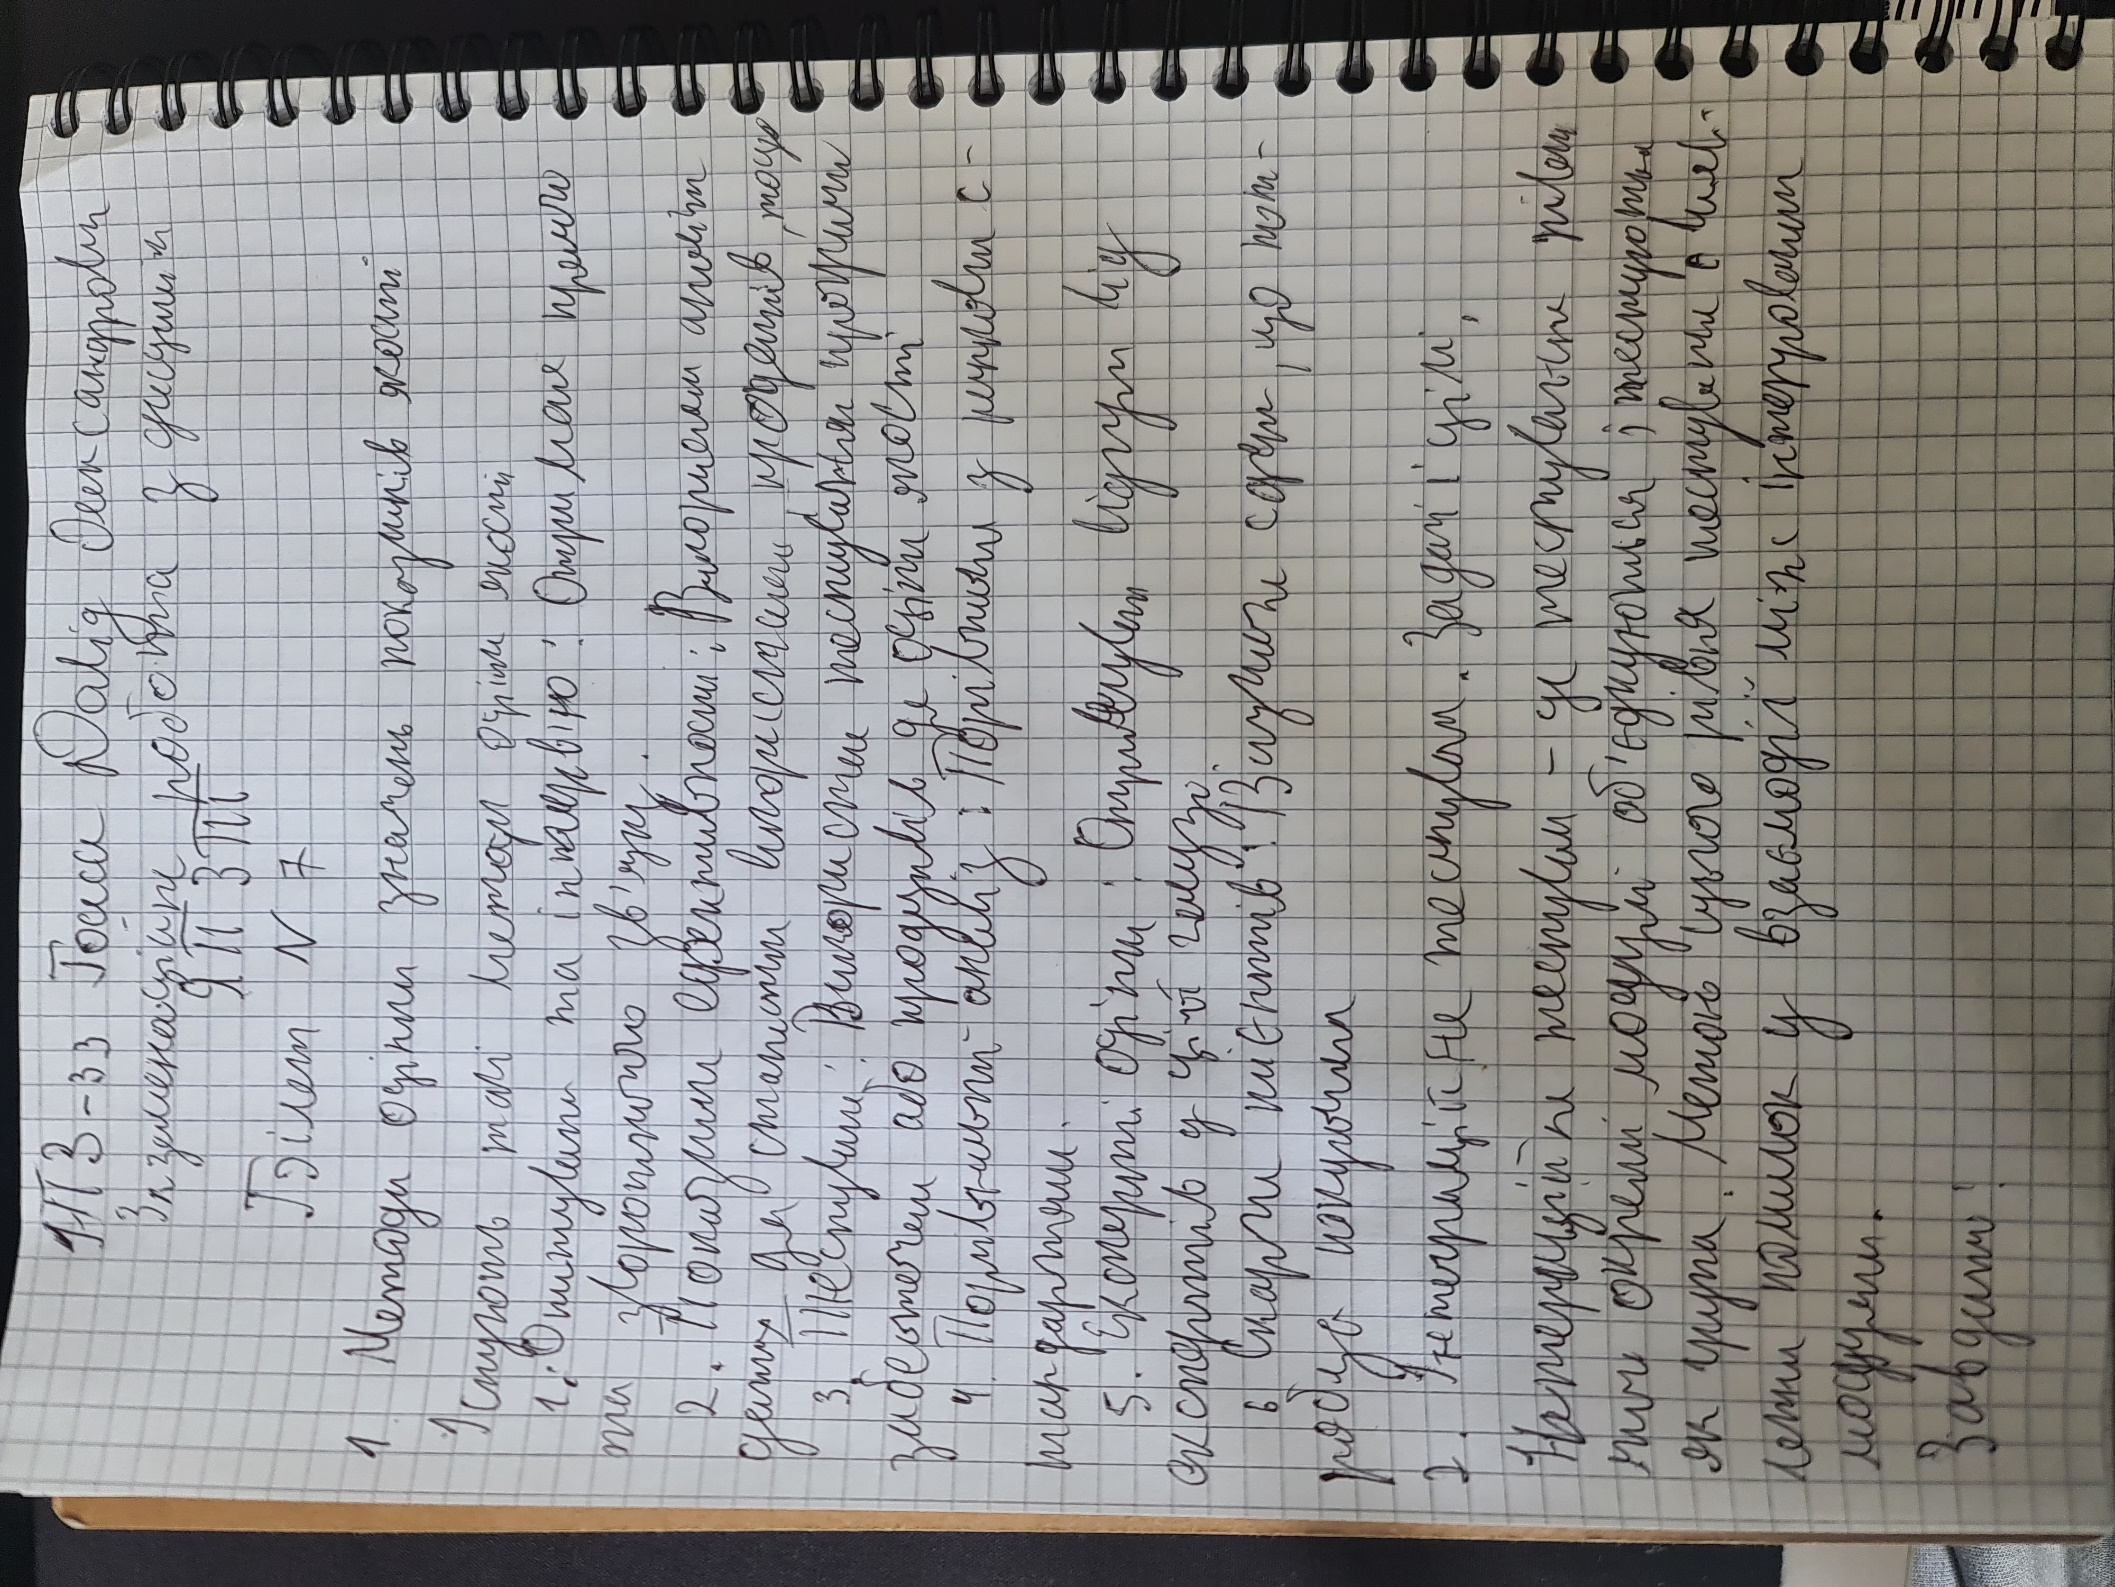 ІПЗ-33 Гоша Давід Олександрович
Екзаменаційна робота з дисципліни
ЯПЗТП
Білет N 7
1 Методи оцінки значень показників якості
Існують такі методи оцінки якості
1. Опитування та інтерв'ю: Отримання прямого
та зворотнього зв'язку.
2. Показники ефективності: Використання аналітичних
даних для статистики використання продуктів тощо
3. Тестування: Використання тестування програмного
забезпечення або продуктів для оцінки якості
4 Порівняльний аналіз: Порівняння з ринковими с-
тандартами.
5. Експертні оцінки: Отримування відгуки від
експертів у цій галузі
6 Скарги клієнтів: Вивчати скарги, що пот-
робує покупця
2. Інтеграційне тестування. Задачі і цілі,
Інтеграційне тестування - це тестування рівень
якого окремі модулі об'єднуються і тестуються
як група. Метою цього рівня тестування є вияв-
лення помилок у взаємодії між інтегрованими
модулями.
Завдання: